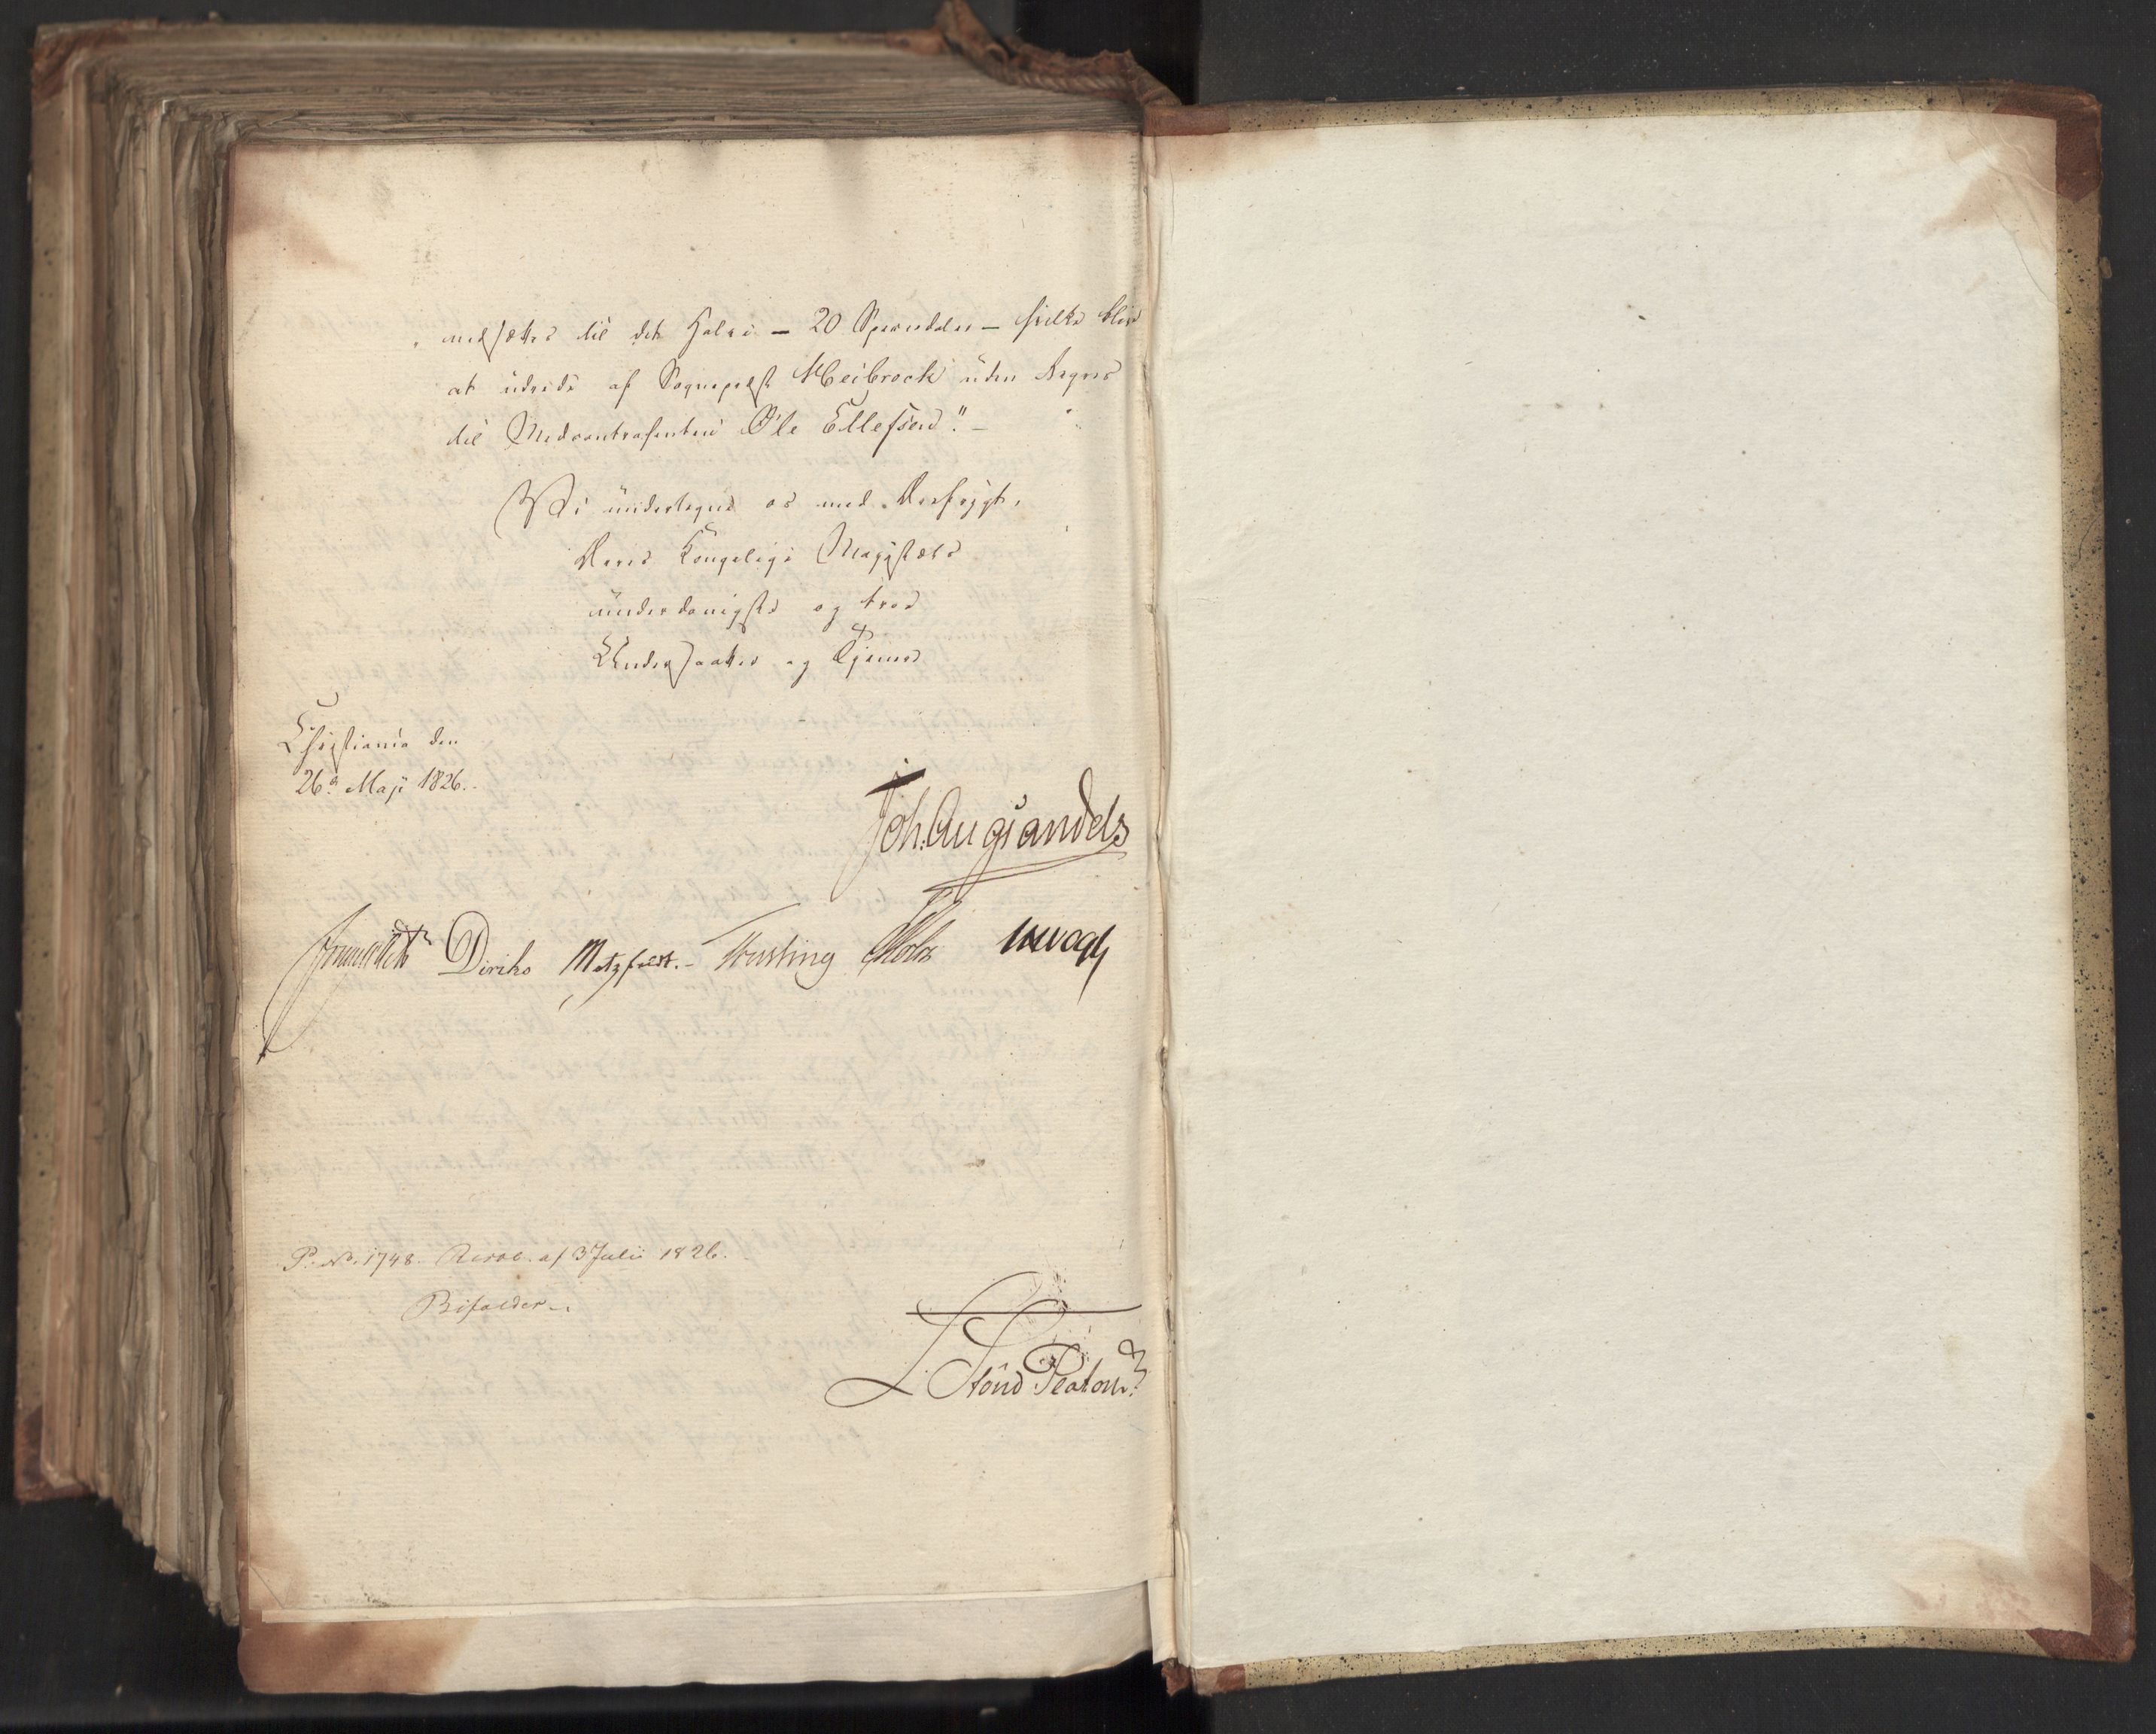 nedsættes til det Halve — 20 Speciedaler — hvilke blive
at udrede af Sognepræst Meibrock uden Regres
til Medcontrahenten Ole Ellefsen". —
Vi undertegne os med Ærefrygt,
Deres Kongelige Majestæts
underdanigste og troe
Undersaatter og Tjenere
Christiania den
26de Maji 1826.
Joh: Aug: Sandels
Diriks Motzfeldt. Krefting Holst JHVogt
P. No. 1748. Resol. af 3 Julii 1826.
Bifaldes.
L. Stoud Platou